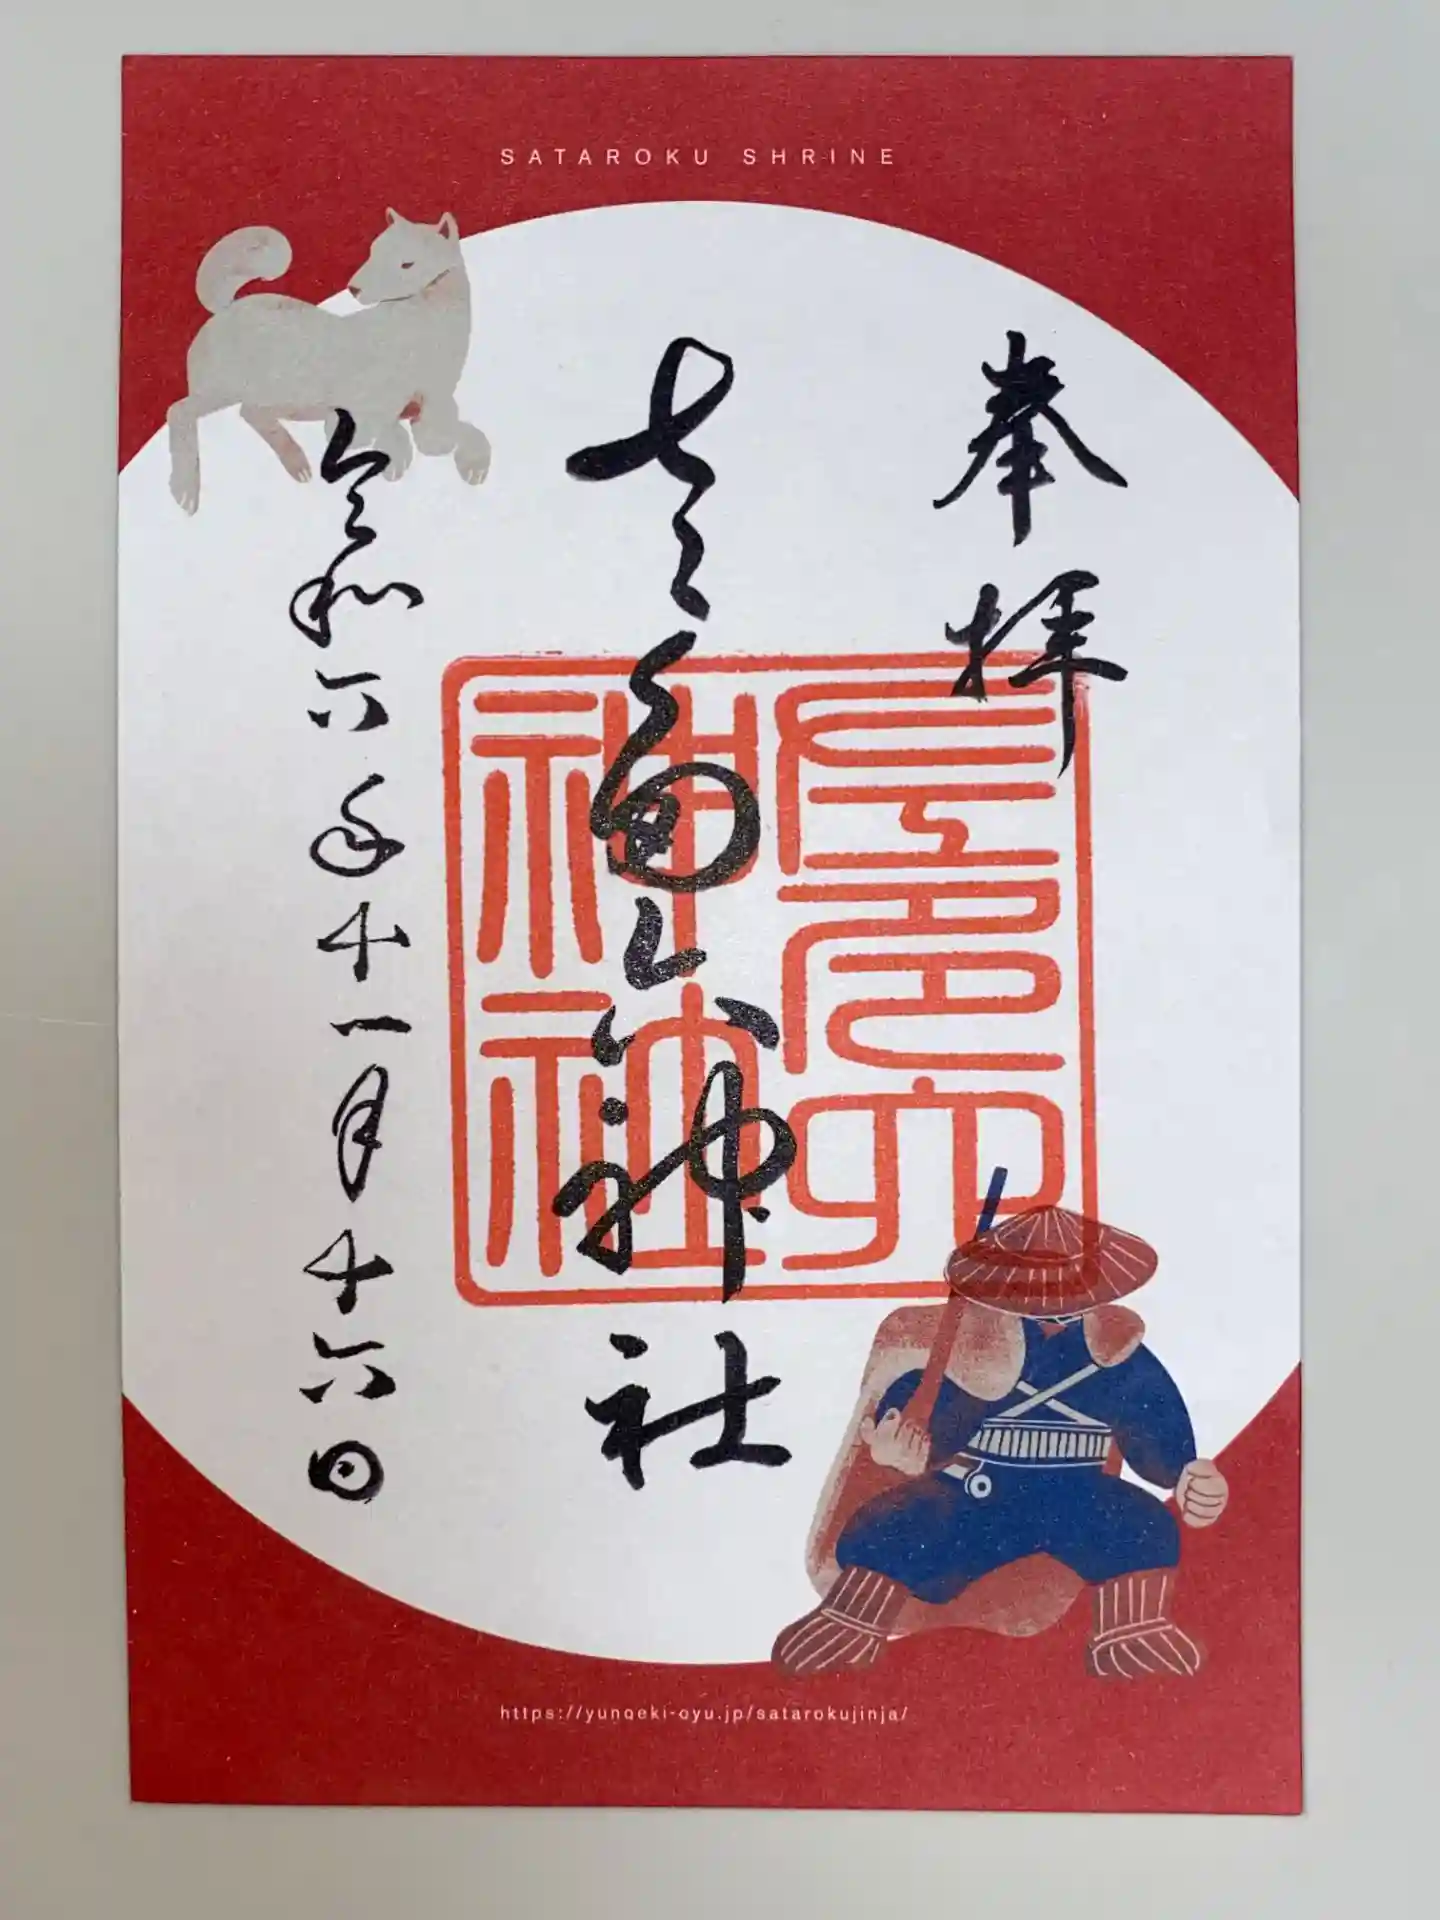 SATAROKU SHRINE
奉拝
左多六神社
令和六年十一月十六日
左多六
神社
https://yunoeki-oyu.jp/satarokujinja/